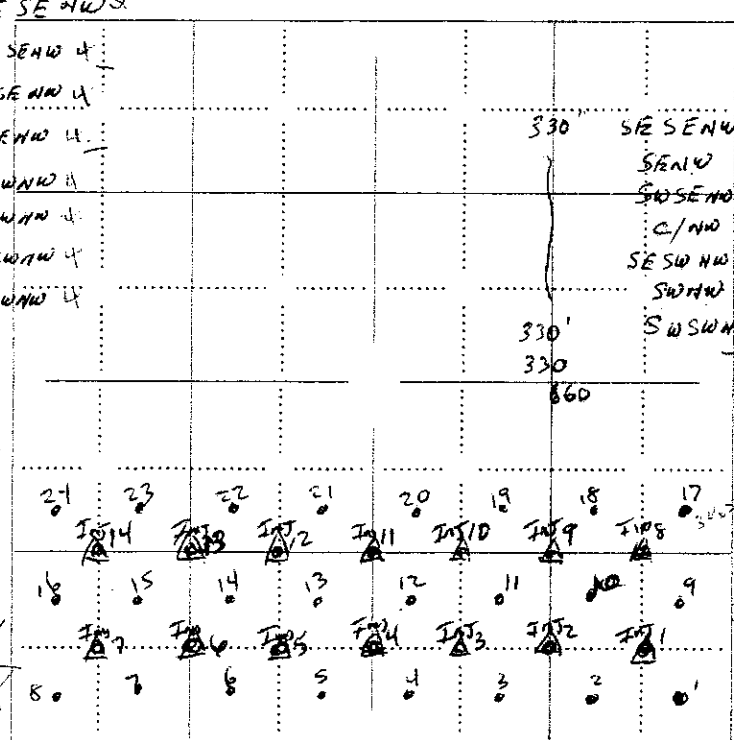 SE NW
SENW 4
SE NW 4
ENW 4
WNW 4
WNW 4
WNW 4
WNW 4
330' SE SENW
SENW
SWSENW
C/NW
SE SW NW
SWNW
SWSWN
330'
330
660
24 23 22 21 20 19 18 17
INJ 14 INJ 13 INJ 12 INJ 11 INJ 10 INJ 9 INJ 8
16 15 14 13 12 11 10 9
INJ 7 INJ 6 INJ 5 INJ 4 INJ 3 INJ 2 INJ 1
8 7 6 5 4 3 2 1